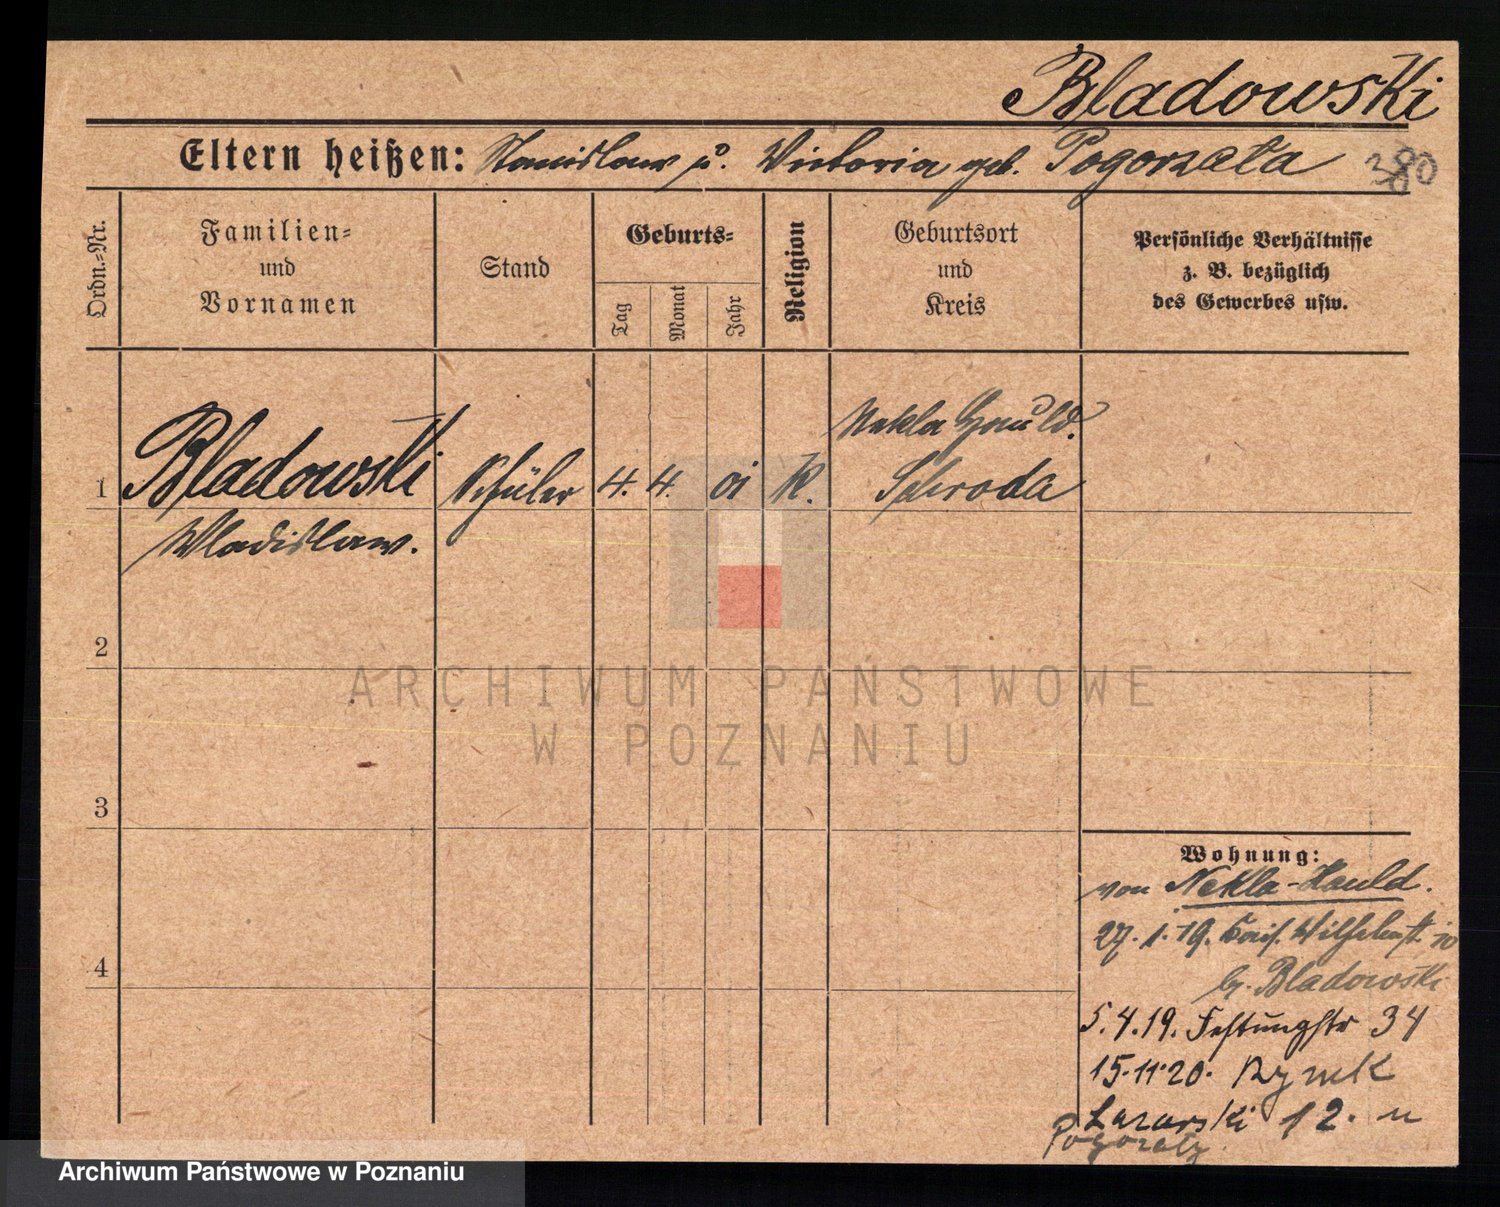 Bladowski
Eltern heißen: Stanislaus u. Victoria geb. Pogorzała
380
Ordn.-Nr.
Familien-
und
Vornamen
Stand
Geburts-
Tag
Monat
Jahr
Religion
Geburtsort
und
Kreis
Persönliche Verhältnisse
z. B. bezüglich
des Gewerbes usw.
Nekla Hauld.
1 Bladowski Schüler 4. 4. 01 K. Schroda
Wladislaw.
2
3
4
ARCHIWUM PAŃSTWOWE
W POZNANIU
Wohnung:
von Nekla-Hauld.
27.1.19. Wilhelmstr. 10
b. Bladowski
5.4.19. Festungstr 34
15.11.20. Rynek
Lazarski 12. u
Archiwum Państwowe w Poznaniu